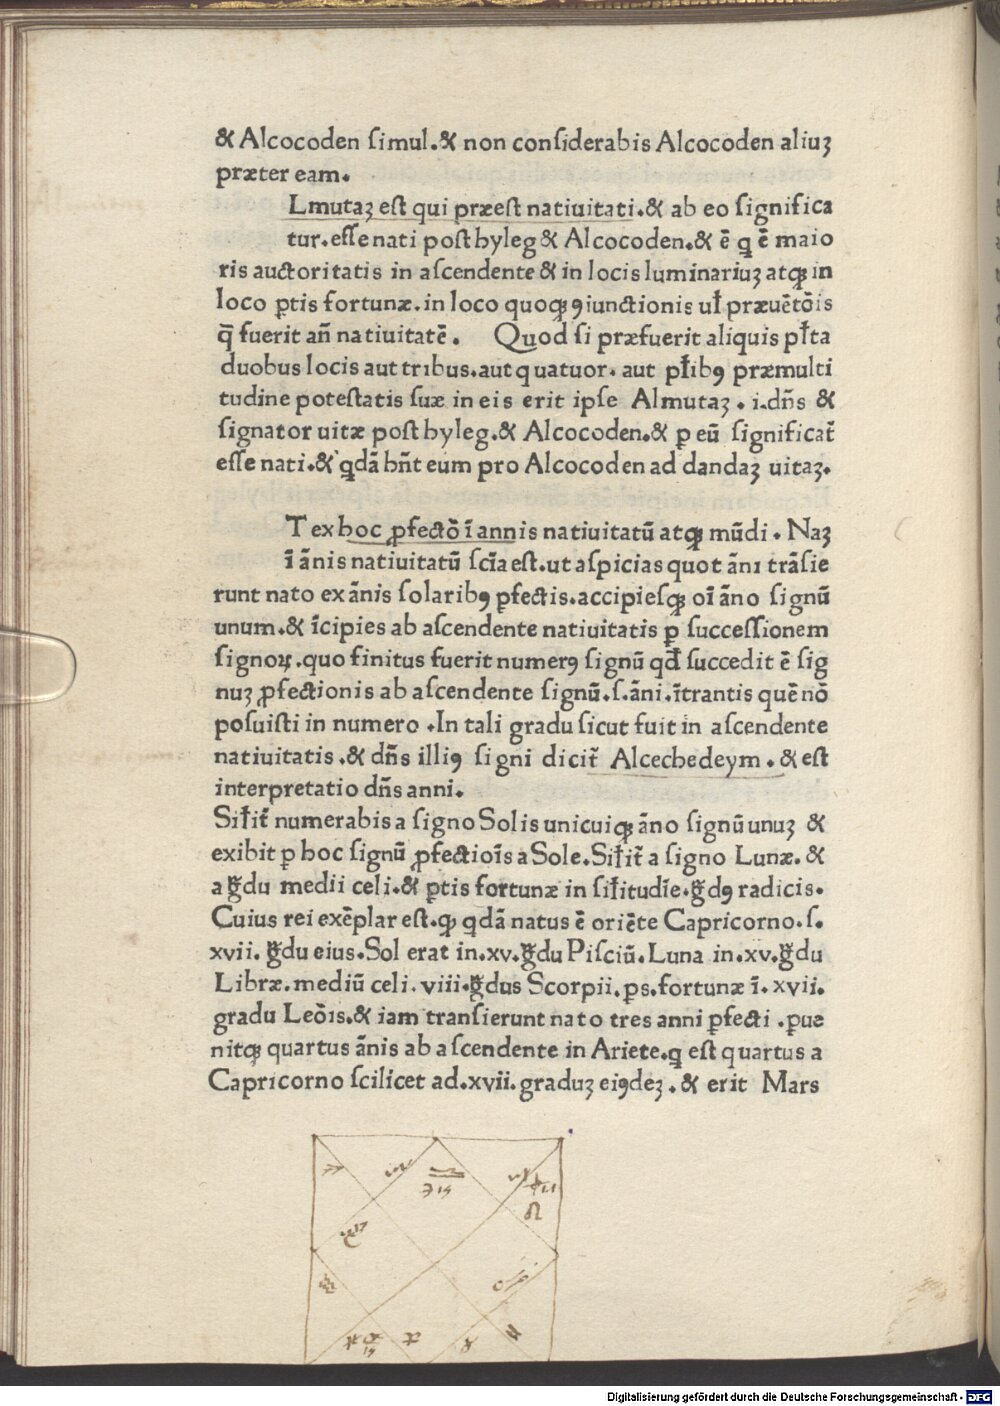 & Alcocoden ſimul.& non conſiderabis Alcocoden aliuꝫ
præter eam.
Lmutaꝫ eſt qui præeſt natiuitati.& ab eo ſignifica
tur.eſſe nati poſt hyleg & Alcocoden.& ē q̨ ē maio
ris auctoritatis in aſcendente & in locis luminariuꝫ atqꝫ in
loco ꝑtis fortunæ.in loco quoqꝫ ꝯiunctionis ul̄ præuētōis
q̄ fuerit an̄ natiuitatē. Quod ſi præfuerit aliquis pl̄ta
duobus locis aut tribus.aut quatuor. aut pl̄ibꝯ præmulti
tudine poteſtatis ſuæ in eis erit ipſe Almutaꝫ . i.dn̄s &
ſignator uitæ poſt hyleg.& Alcocoden.& ꝑ eū ſignificat̄
eſſe nati.& qdā hn̄t eum pro Alcocoden ad dandaꝫ uitaꝫ.
T ex hoc ꝓfectō ī annis natiuitatū atqꝫ mūdi . Naꝫ
ī ānis natiuitatū ſcīa eſt.ut aſpicias quot āni trāſie
runt nato ex ānis ſolaribꝯ ꝑfectis.accipieſqꝫ oī āno ſignū
unum.& īcipies ab aſcendente natiuitatis ꝑ ſucceſſionem
ſignoꝝ.quo finitus fuerit numerꝯ ſignū qd̄ ſuccedit ē ſig
nuꝫ ꝓfectionis ab aſcendente ſignū.ſ.āni.ītrantis quē nō
poſuiſti in numero .In tali gradu ſicut fuit in aſcendente
natiuitatis.& dn̄s illiꝯ ſigni dicit̄ Alcechedeym . & eſt
interpretatio dn̄s anni.
Sil̄it̄ numerabis a ſigno Solis unicuiqꝫ āno ſignū unuꝫ &
exibit ꝑ hoc ſignū ꝓfectioīs a Sole.Sil̄it̄ a ſigno Lunæ. &
a g̈du medii celi.& ꝑtis fortunæ in ſil̄itudīe.g̈dꝯ radicis.
Cuius rei exēplar eſt.qꝫ qdā natus ē oriēte Capricorno.ſ.
xvii. g̈du eius.Sol erat in.xv.g̈du Piſciū.Luna in.xv.g̈du
Libræ.mediū celi.viii.g̈dus Scorpii.ꝑs.fortunæ ī. xvii.
gradu Leōis.& iam tranſierunt nato tres anni ꝑfecti .ꝑue
nitqꝫ quartus ānis ab aſcendente in Ariete.q̨ eſt quartus a
Capricorno ſcilicet ad.xvii.graduꝫ eiꝯdeꝫ . & erit Mars
♐ ♏ ♎ ♍
♌
♑
♒ ♋
♓ ♈ ♉ ♊
Digitalisierung gefördert durch die Deutsche Forschungsgemeinschaft - DFG